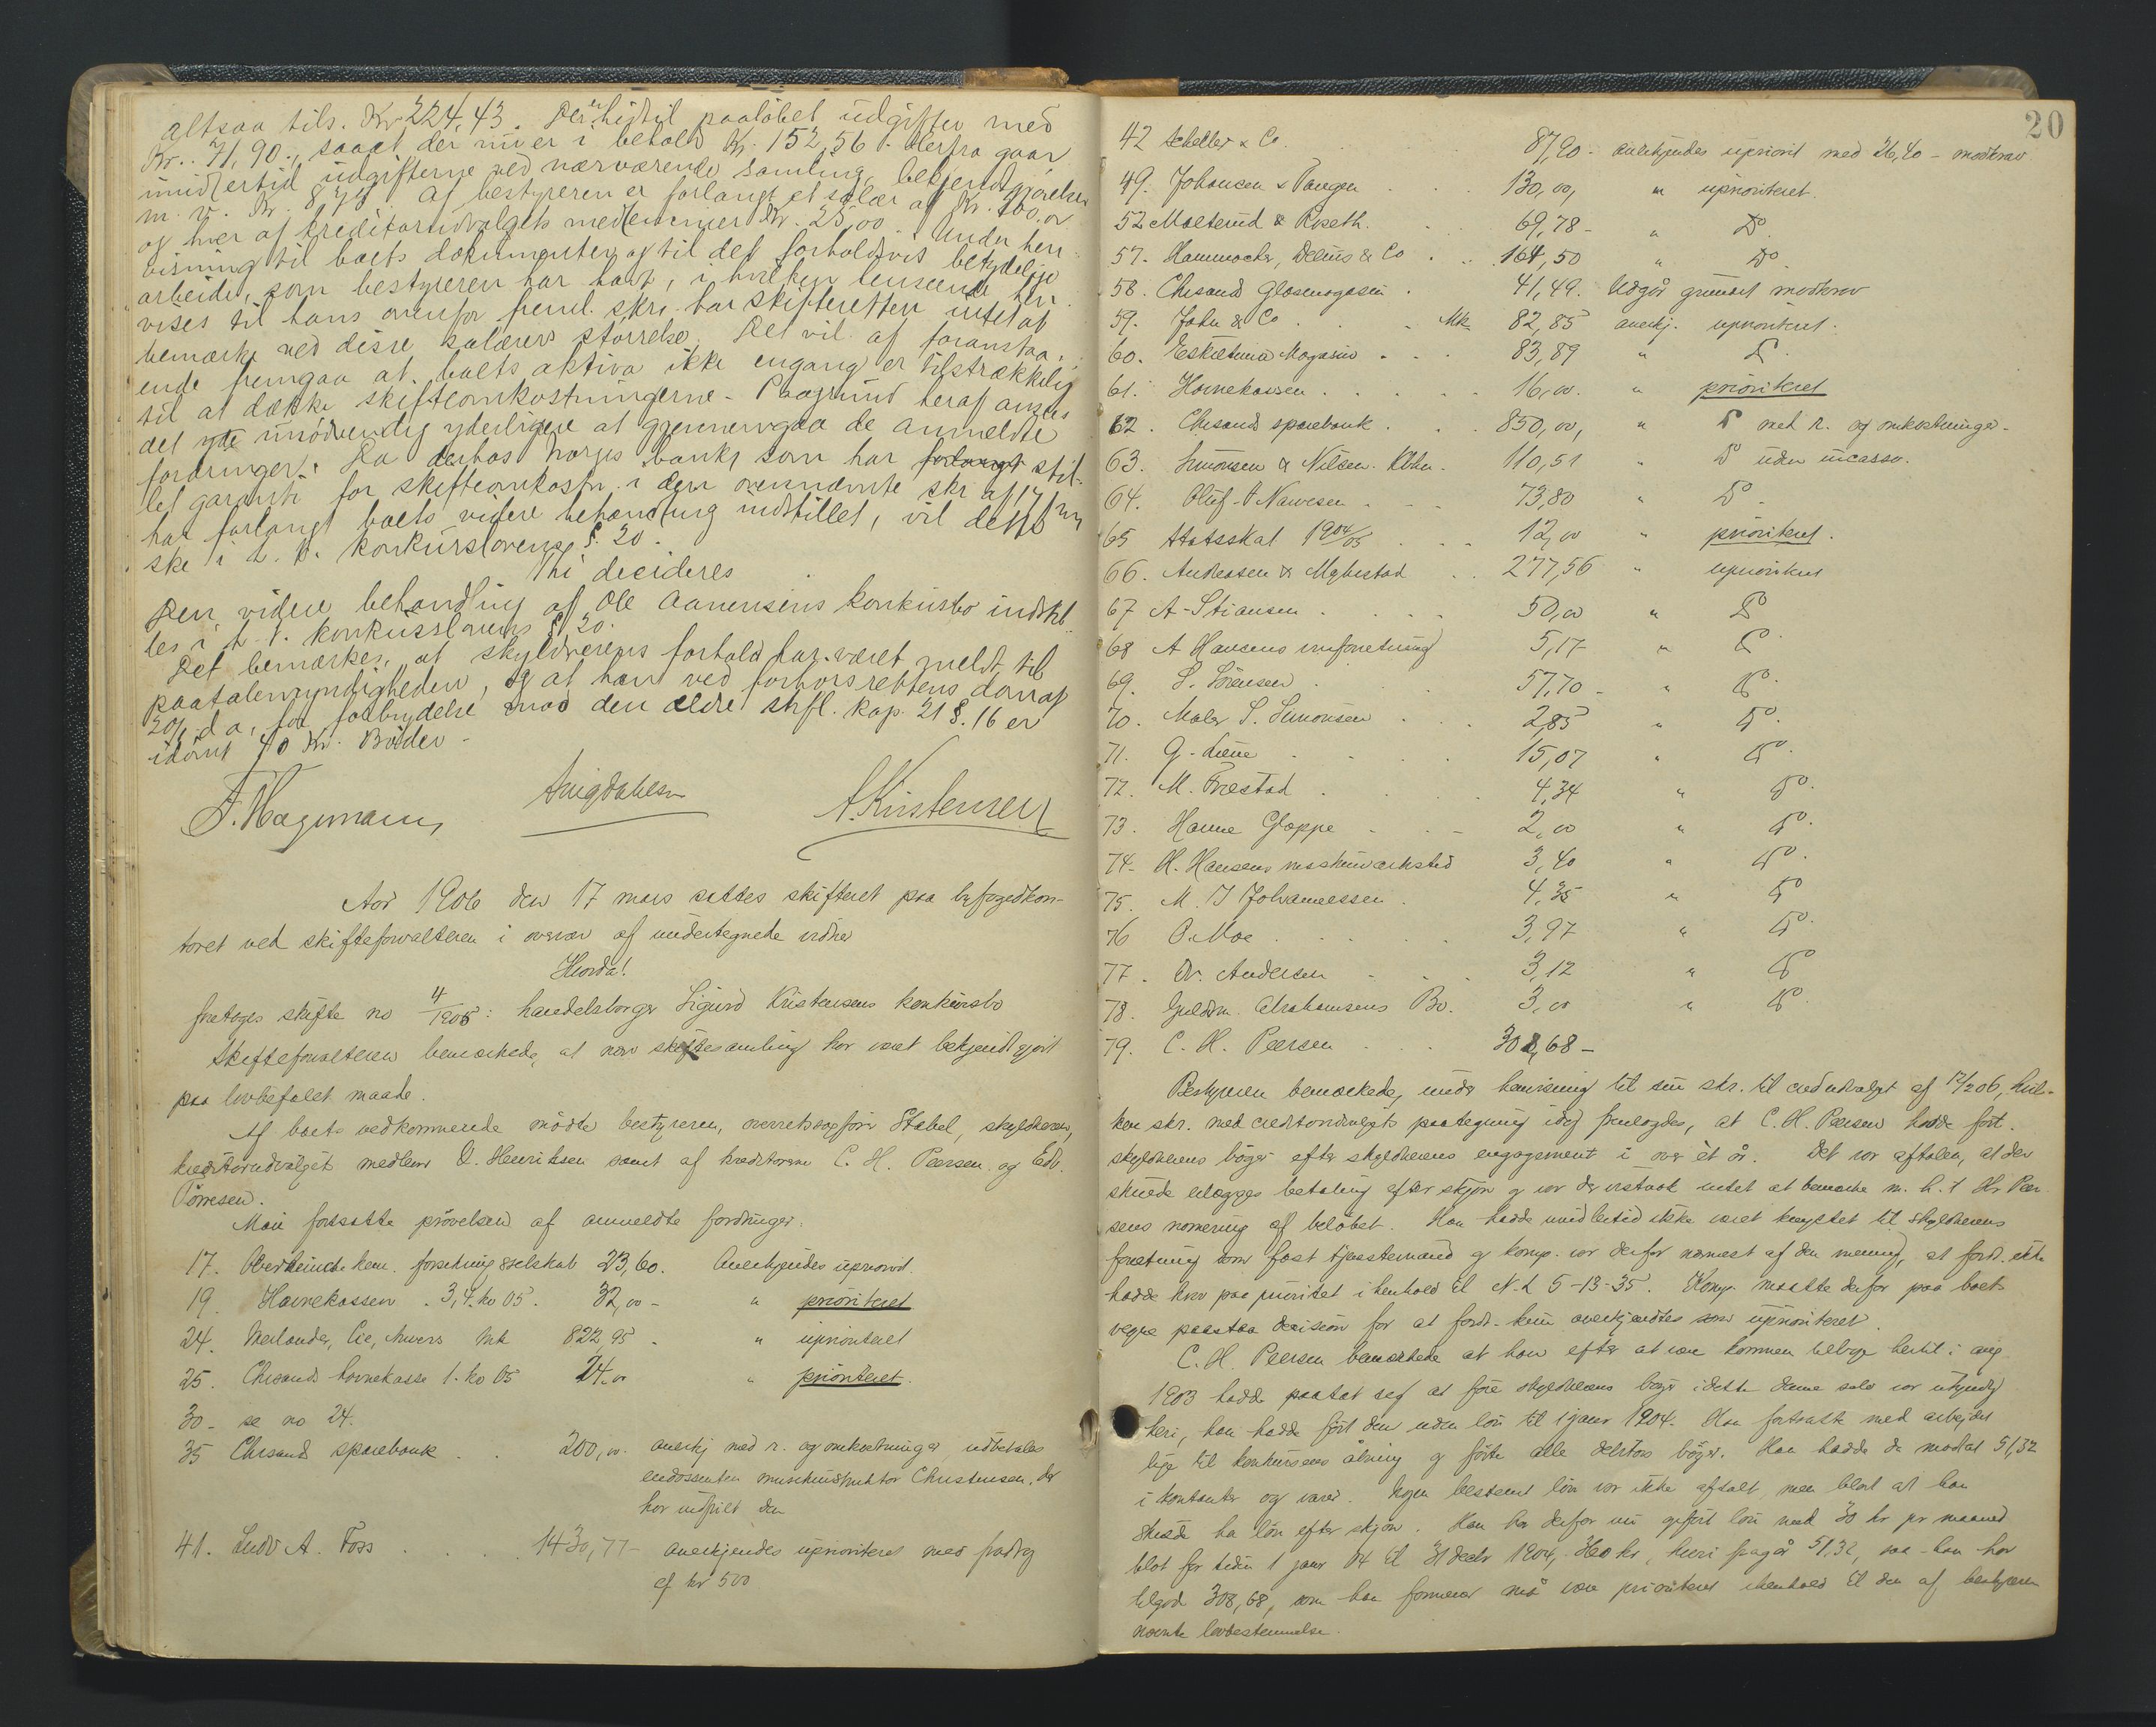 altsaa tils. Kr 224,43. Der er hidtil paaløbet udgifter med
Kr. 71,90, saaat der nu er i behold Kr. 152,56. Herfra gaar
imidlertid udgifterne ved nærværende samling, bekjendtgjørelser
m. v. Kr. 8,75. Af bestyreren er forlangt et salær af Kr. 300,00
og hver af kreditorudvalgets medlemmer Kr. 25,00. Under hen-
visning til boets dokumenter og til det forholdsvis betydelige
arbeide, som bestyreren har havt, i hvilken henseende hen-
vises til hans ovenfor freml. skr. har skifteretten intet at
bemærke ved disse salærers størrelse. Det vil af foranstaa-
ende fremgaa at boets aktiva ikke engang er tilstrækkelig
til at dække skifteomkostningerne. Paagrund heraf ansees
det unødvendig yderligere at gjennemgaa de anmeldte
fordringer. Da derhos Norges Bank som har forlangt stil-
let garanti for skifteomkostn. i den ovennævnte skr af 17/
har forlangt boets videre behandling indstillet, vil dette
ske i h. t. konkurslovens § 20.
Thi decideres
Den videre behandling af Ole Aanensens konkursbo indstil-
les i h. t. konkurslovens § 20.
Det bemærkes, at skyldnerens forhold har været meldt til
paatalemyndigheden, og at han ved forhørsrettens dom af
20/ d. a. for forbrydelse mod den ældre strfl. kap. 21 § 16 er
idømt 40 Kr. Bøder -
F. Hagemann, A. Kristensen
Aar 1906 den 17 mars sattes skifteret paa byfogedkon-
toret ved skifteforvalteren i overvær af undertegnede vidner
Hvorda!
foretoges skifte no 4/1905: handelsborger Sigurd Kristensens konkursbo
Skifteforvalteren bemærkede, at nærv skiftesamling har været bekjendtgjort
paa lovbefalet maade.
Af boets vedkommende mødte bestyreren, overretssagfører Stabel, skyldneren,
kreditorudvalgets medlem O. Henriksen samt af kreditorerne C. H. Peersen og Edv.
Tørresen.
Man fortsatte prøvelsen af anmeldte fordringer:
17. Oberrheinische forsikringsselskab 23,60. Anerkjendes uprioril.
19. Havnekassen. 3,4. kv 05. 32,00 - " prioriteret
24. Cie, Mk 822,95. " uprioriteret
25. Chrsands havnekasse 1. kv 05 24,00 " prioriteret.
30 - se no 24.
35 Chrsand sparebank . . 200,00. anerkj med r. og omkostninger udbetales
endossenten musikinstruktør Christensen, der
har indfriet den
41. Ludv A. Foss . . . . 1430,77 - anerkjendes uprioriteret med fradrag
af kr 500
20
42 Scheller & Co. . . 87,90 - anerkjendes upriorit med 26,40 - modkrav
49. Johansen & Tangen . . . 130,00, " uprioriteret.
52 Molterud & Roseth. . . . 69,78 - " Do.
57. Hammocks, Delius & Co . . . 164,50 " Do.
58. Chrsand Glasmagasin . 41,49. Udgår grundet modkrav
59. John & Co . . . . Mk. 82,85 anerkj. uprioriteret.
60. Eskilstuna Magasin . . . 83,89 " Do.
61. Havnekassen . . . . . 16,00. " prioriteret
62. Chrsands sparebank . . . 850,00, " Do med r. og omkostninger -
63. Simonsen & Nilsen. Kbhn. 110,51 " Do uden incasso.
64. Oluf A Narvesen . . - 73,80 " Do.
65 Statsskat 1904/05 . . . 12,00 " prioriteret.
66. Andreasen & Myhrstad . . 277,56 " uprioriteret
67 A. Stiansen . . . . 50,00 " Do
68 A Hansens vinforretning 5,17 " Do
69. S. Sørensen . . 57,70 - " Do.
70. Maler S. Simonsen . . . 2,85 " Do.
71. G. Liene . . . . 15,07 " Do.
72. M. Træstad . . . . 4,34 " Do.
73. Hanne Gloppe - . - 2,00 " Do.
74. H. Hansens maskinværksted 3,40 " Do.
75. M. J Johannessen . 4,35 " Do
76 O. Moe . . . . 3,97 " Do.
77. Dr. Andersen - . - 3,12 " Do
78. Guldsm. Abrahamsens Bo. 3,00 " Do.
79. C. H. Peersen . . . 308,68 -
Bestyreren bemærkede, under henvisning til sin skr. til credudvalget af 17/2 06, hvil-
ken skr. med creditorudvalgets paategning idag fremlagdes, at C. H. Peersen havde ført
skyldnerens bøger efter skyldnerens engagement i over ét år. Det var aftalen, at der
skulde erlægges betaling efter skjøn og var der isaafald intet at bemærke m. h. t. Hr Peer-
sens normering af beløbet. Han havde imidlertid ikke været knyttet til skyldnerens
forretning som fast tjenestemand og komp. var derfor nærmest af den mening, at fordr. ikke
havde krav paa prioritet i henhold til N. L 5-13-35. Komp. maatte derfor paa boets
vegne paastaa decision for at fordr. kun anerkjendtes som uprioriteret.
C. H. Peersen bemærkede at han efter at være kommen tilbage hertil i aug
1903 havde paatat sig at føre skyldnerens bøger idet denne selv var ukyndig
heri, han havde ført dem uden løn til 1 januar 1904. Han fortsatte med arbeidet
lige til konkursens åbning og førte alle debitors bøger. Han havde da modtat 51,32
i kontanter og varer. Nogen bestemt løn var ikke aftalt, men blot at han
skulde ha løn efter skjøn. Han har derfor nu opført løn med 30 kr pr maaned
blot for tiden 1 janr 04 til 31 decbr 1904, 360 kr, heri fragår 51,32, saa han har
tilgod 308,68, som han formener må være prioriteret i henhold til den af bestyreren
nævnte lovbestemmelse.